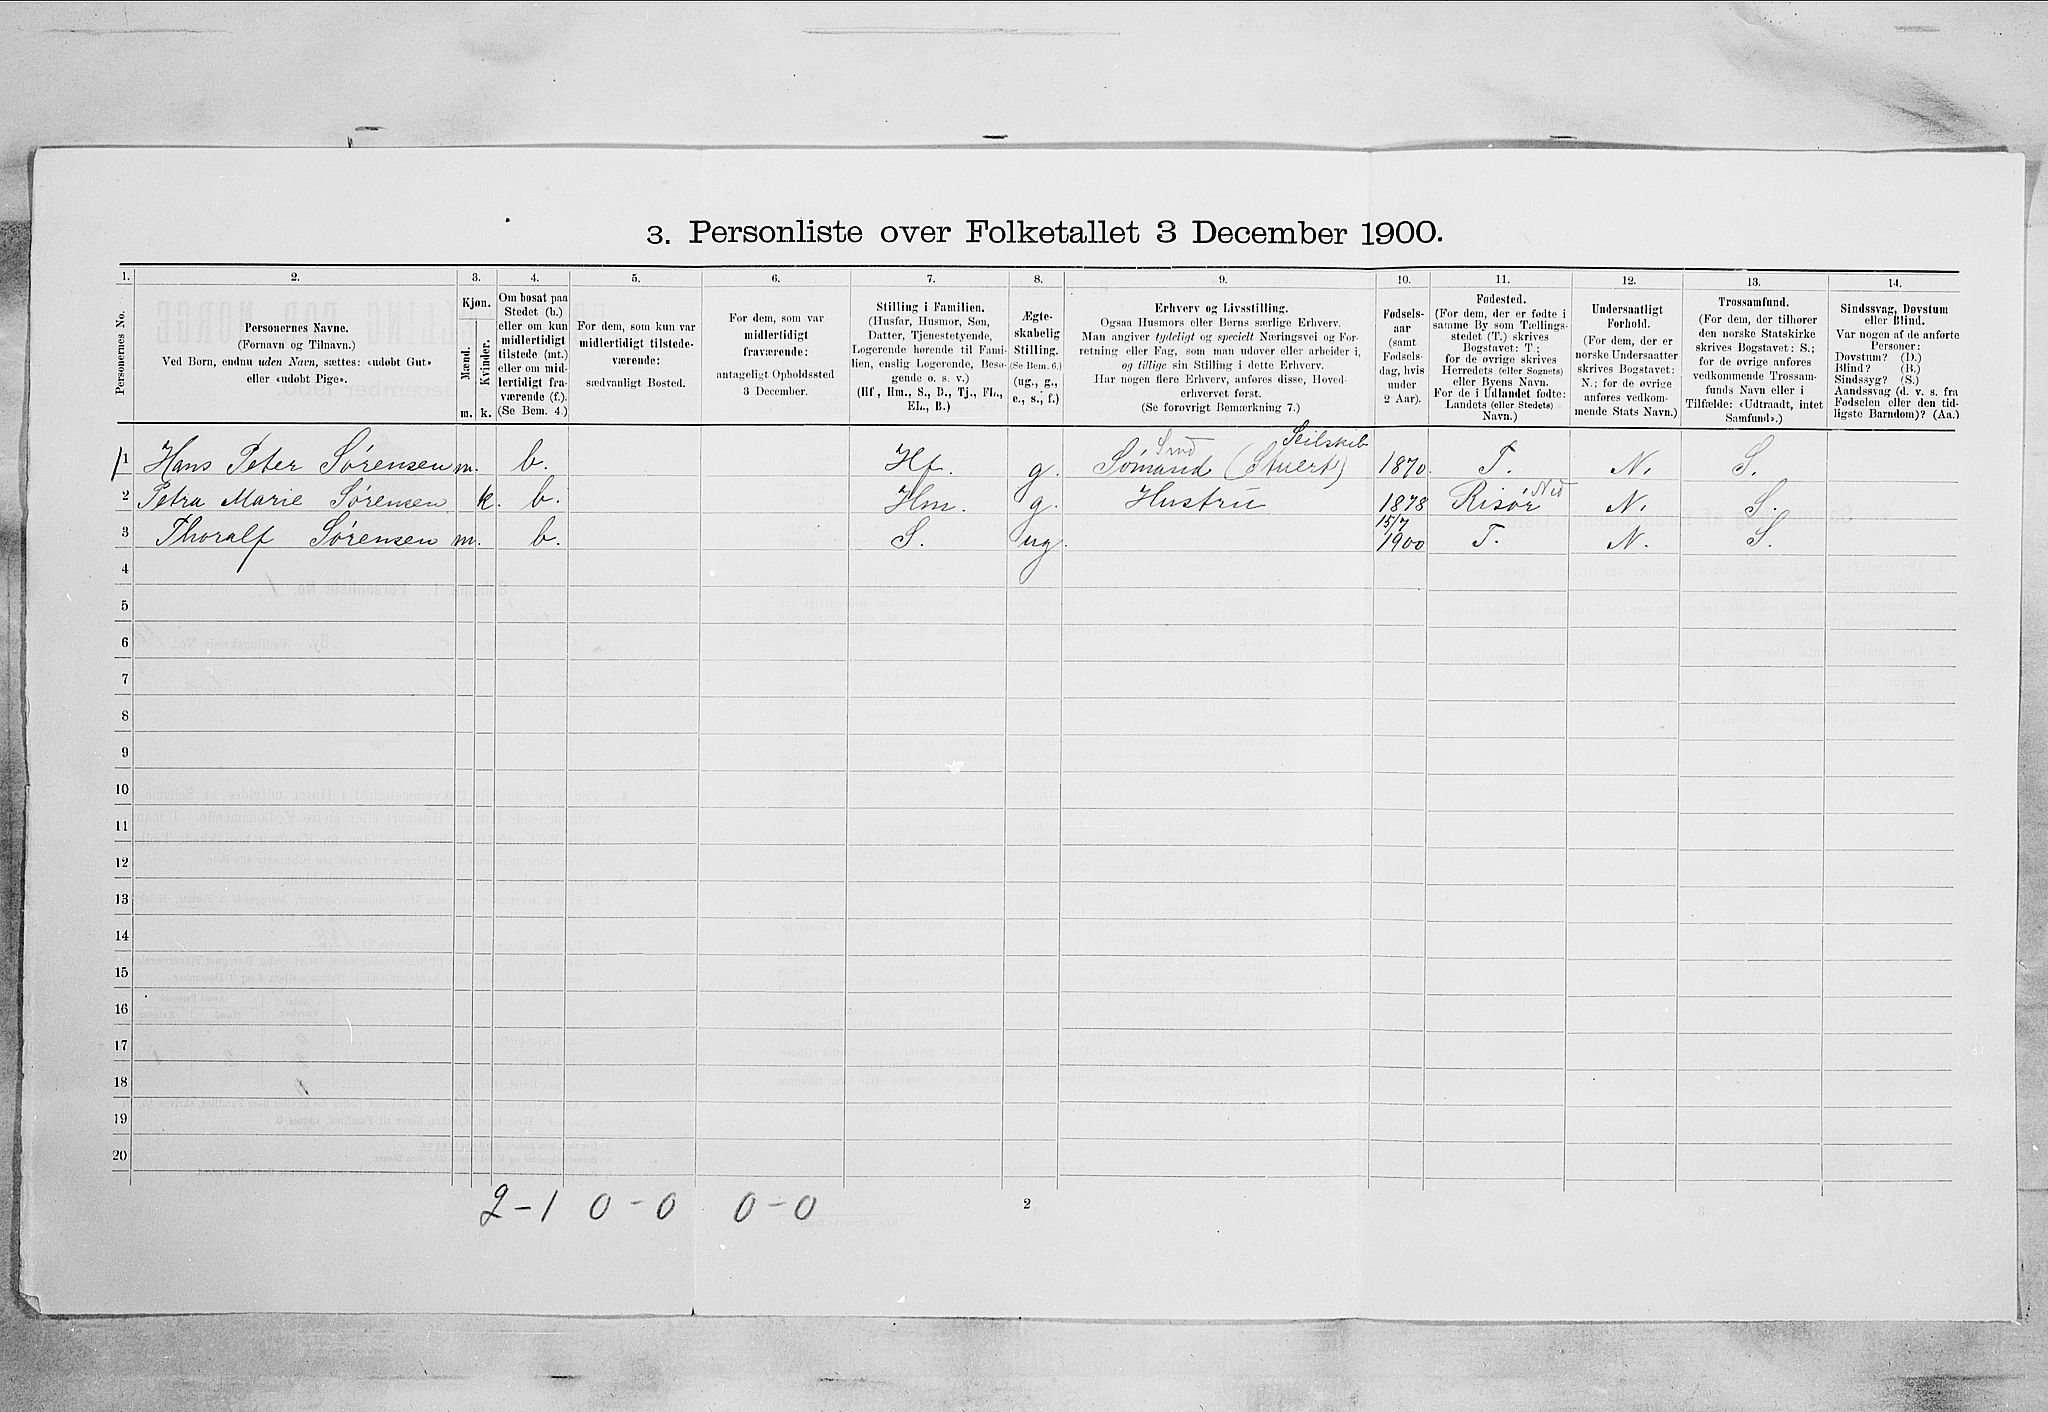 3. Personliste over Folketallet 3 December 1900.
1. 2. 3. 4. 5. 6. 7. 8. 9. 10. 11. 12. 13. 14.
Personernes No.
Personernes Navne.
(Fornavn og Tilnavn.)
Ved Børn, endnu uden Navn, sættes: «udøbt Gut»
eller «udøbt Pige».
Kjøn.
Mænd.
Kvinder.
m. k.
Om bosat paa
Stedet (b.)
eller om kun
midlertidigt
tilstede (mt.)
eller om mid-
lertidigt fra-
værende (f.).
(Se Bem. 4.)
For dem, som kun var
midlertidigt tilstede-
værende:
sædvanligt Bosted.
For dem, som var
midlertidigt
fraværende:
antageligt Opholdssted
3 December.
Stilling i Familien.
(Husfar, Husmor, Søn,
Datter, Tjenestetyende,
Logerende hørende til Fami-
lien, enslig Logerende, Besø-
gende o. s. v.)
(Hf., Hm., S., D., Tj., FL.,
EL., B.)
Ægte-
skabelig
Stilling.
(Se Bem. 6.)
(ug., g.,
e., s., f.)
Erhverv og Livsstilling.
Ogsaa Husmors eller Børns særlige Erhverv.
Man angiver tydeligt og specielt Næringsvei og For-
retning eller Fag, som man udøver eller arbeider i,
og tillige sin Stilling i dette Erhverv.
Har nogen flere Erhverv, anføres disse, Hoved-
erhvervet først.
(Se forøvrigt Bemærkning 7.)
Fødsels-
aar
(samt
Fødsels-
dag, hvis
under
2 Aar).
Fødested.
(For dem, der er fødte i
samme By som Tællings-
stedet (T.) skrives
Bogstavet: T.;
for de øvrige skrives
Herredets (eller Sognets)
eller Byens Navn.
For de i Udlandet fødte:
Landets (eller Stedets)
Navn.)
Undersaatligt
Forhold.
(For dem, der er
norske Undersaatter
skrives Bogstavet:
N.; for de øvrige
anføres vedkom-
mende Stats Navn.)
Trossamfund.
(For dem, der tilhører
den norske Statskirke
skrives Bogstavet: S.;
for de øvrige anføres
vedkommende Trossam-
funds Navn eller i
Tilfælde: «Udtraadt, intet
Samfund».)
Sindssvag, Døvstum
eller Blind.
Var nogen af de anførte
Personer:
Døvstum? (D.)
Blind? (B.)
Sindssyg? (S.)
Aandssvag (d. v. s. fra
Fødselen eller den tid-
ligste Barndom)? (Aa.)
Seilskib
1 Hans Peter Sørensen m. b. Hf. g. Sømand (Stuert) 1870. T. N. S.
2 Petra Marie Sørensen k. b. Hm. g. Hustru 1878 Risør N. S.
15/7
3 Thoralf Sørensen m. b. S. ug. 1900 T. N. S.
4
5
6
7
8
9
10
11
12
13
14
15
16
17
18
19
20
2-1 0-0 0-0
2